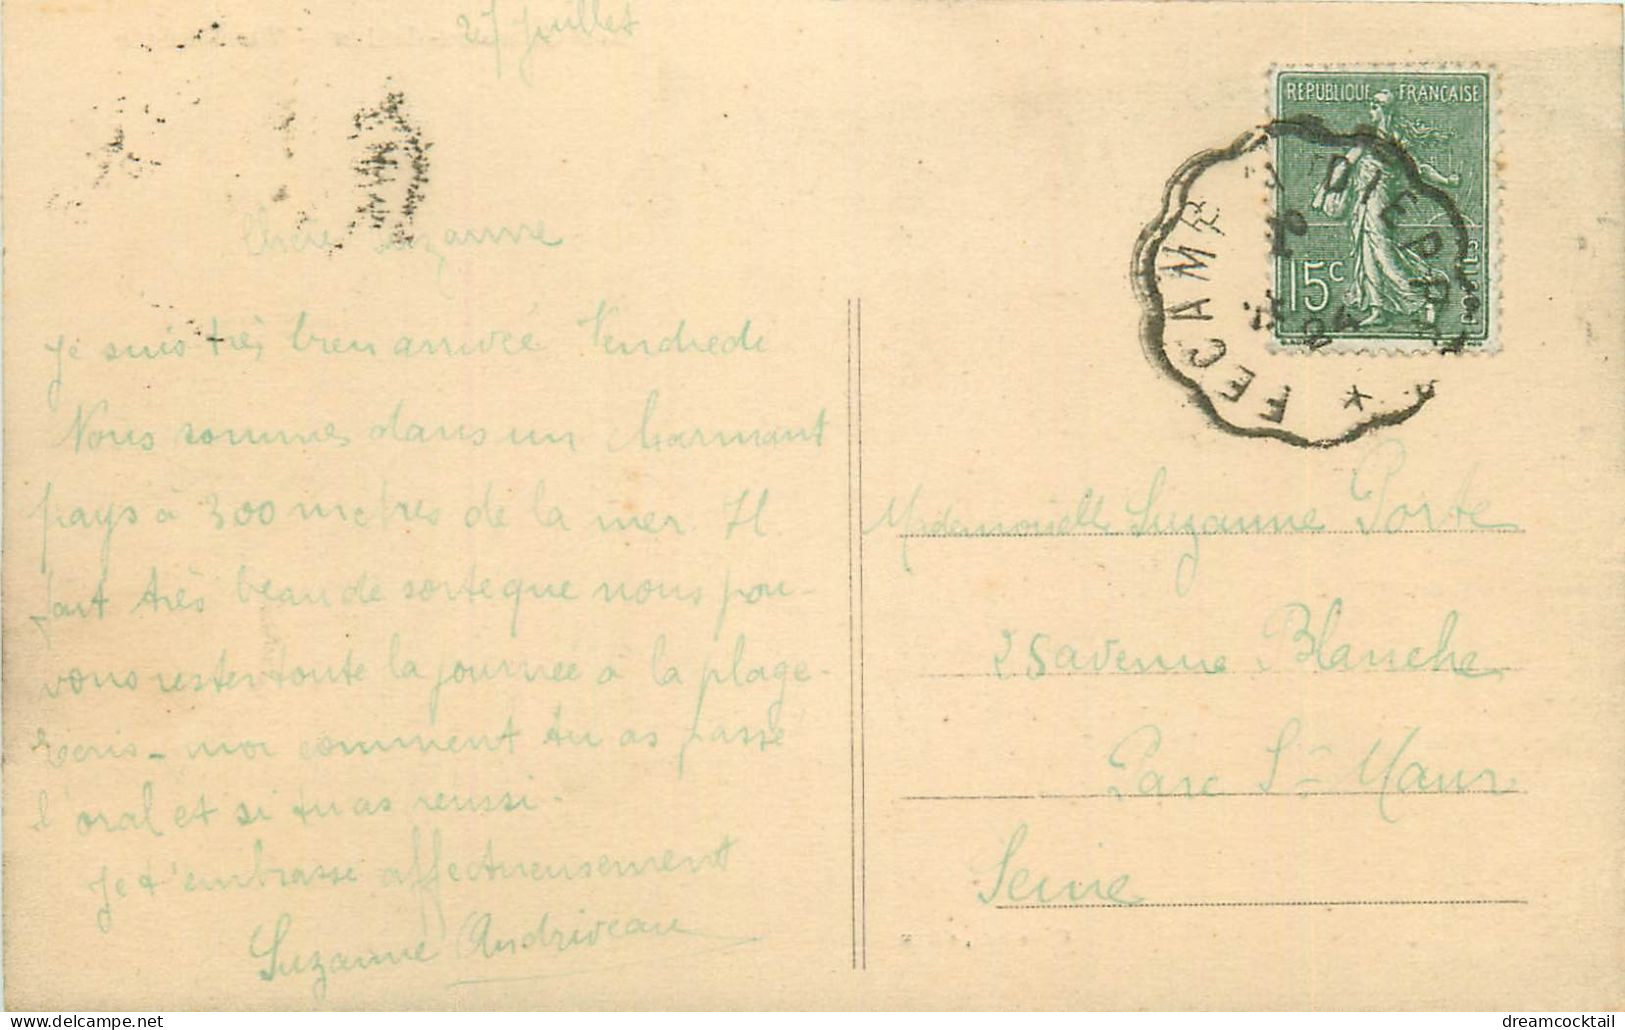 27 Juillet
Chère Suzanne
Je suis très bien arrivée Vendredi
Nous sommes dans un charmant
pays à 300 mètres de la mer. Il
fait très beau de sorte que nous pou-
vons rester toute la journée à la plage-
Ecris-moi comment tu as passé
l'oral et si tu as reussi-
Je t'embrasse affectueusement
Suzanne Andriveau
REPUBLIQUE FRANÇAISE
15c
POSTES
FECAMP DIEPPE
Mademoiselle Suzanne Porte
25 avenue Blanche
Parc St Maur
Seine
delcampe.net
dreamcocktail